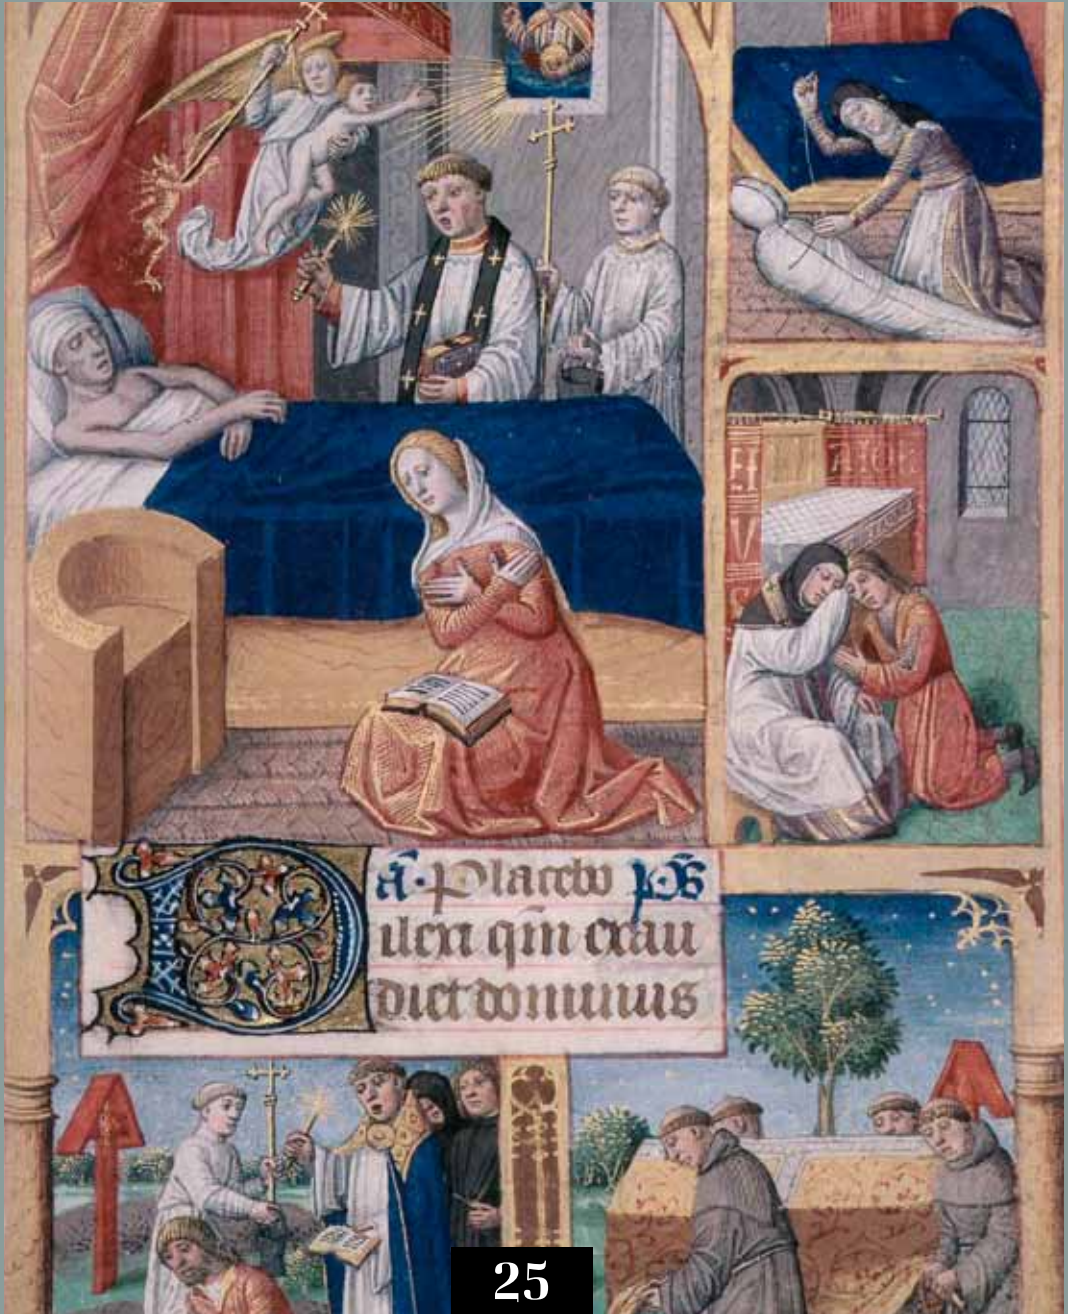 ā · Placebo pš
Dilexi qm̄ exau
diet dominus
25